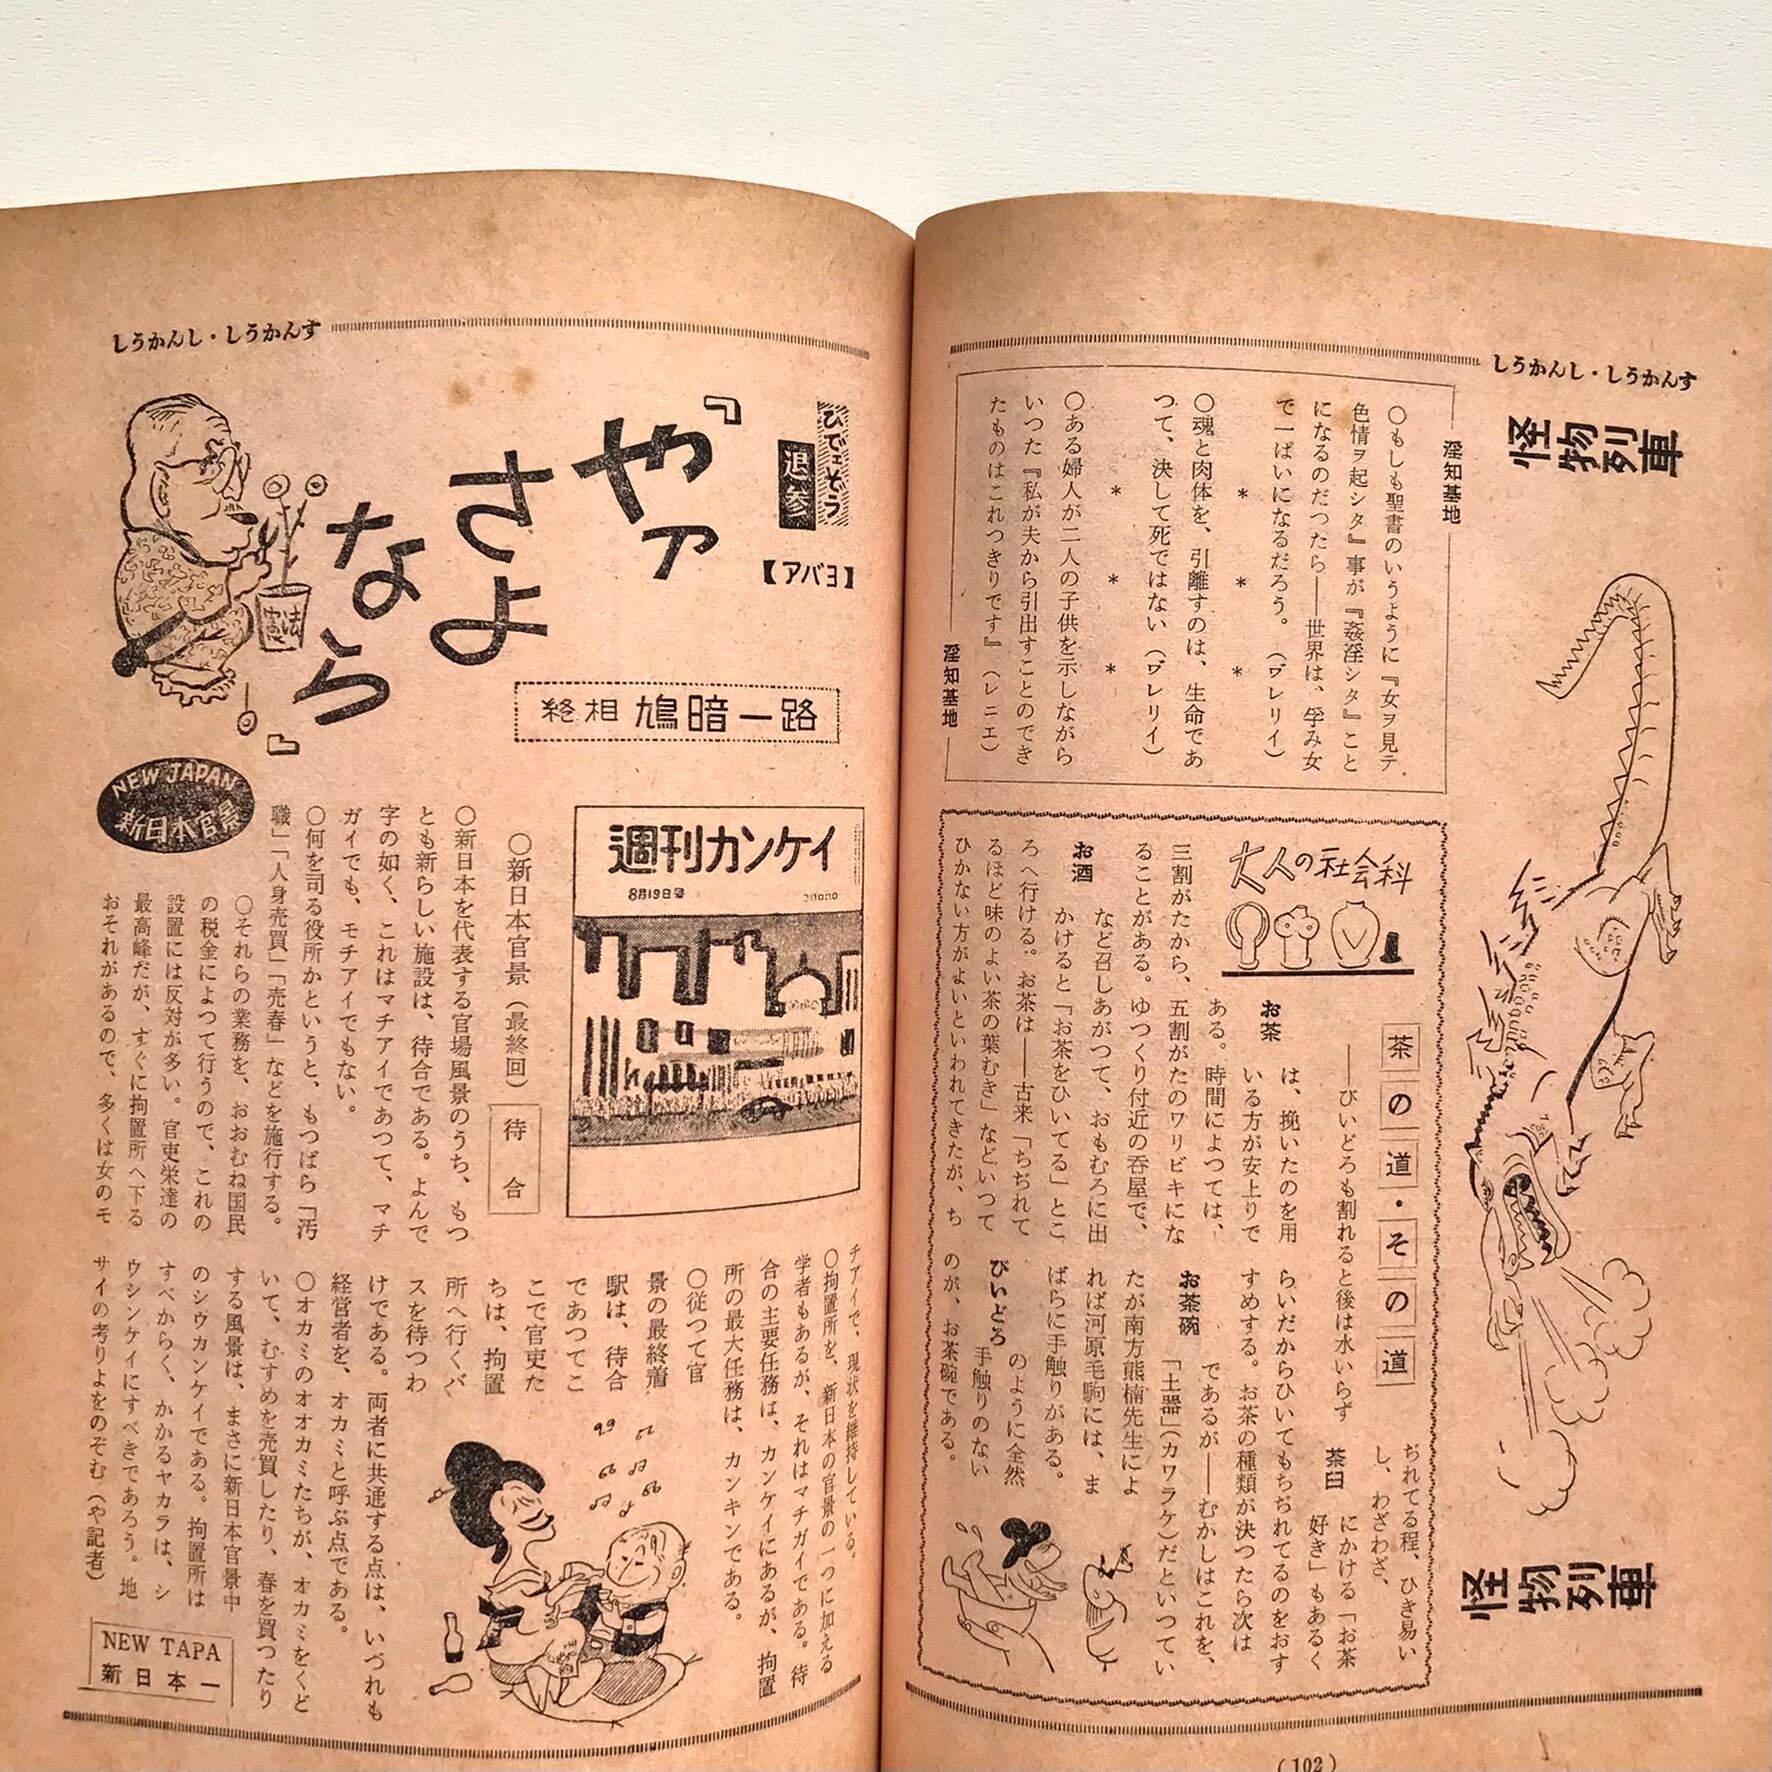 しうかんし・しうかんす
怪物列車
怪物列車
淫知基地
〇もしも聖書のいうように『女ヲ見テ
色情ヲ起シタ』事が『姦淫シタ』こと
になるのだつたら――世界は、孕み女
で一ぱいになるだろう。（ヴレリイ）
＊　＊　＊
〇魂と肉体を、引離すのは、生命であ
つて、決して死ではない（ヴレリイ）
＊　＊　＊
〇ある婦人が二人の子供を示しながら
いつた『私が夫から引出すことのでき
たものはこれつきりです』（レニエ）
淫知基地
大人の社会科
茶の道・その道
――びいどろも割れると後は水いらず
お茶
は、挽いたのを用
いる方が安上りで
ある。時間によつては、
五割がたのワリビキにな
三割がたから、
ることがある。ゆつくり付近の呑屋で、
お酒
など召しあがつて、おもむろに出
かけると「お茶をひいてる」とこ
ろへ行ける。お茶は――古来「ちぢれて
るほど味のよい茶の葉むき」などいつて
ひかない方がよいといわれてきたが、ち
ぢれてる程、ひき易い
し、わざわざ、
茶臼
にかける「お茶
好き」もあるく
らいだからひいてもちぢれてるのをおす
すめする。お茶の種類が決つたら次は
お茶碗
であるが――むかしはこれを、
「土器」（カワラケ）だといつてい
たが南方熊楠先生によ
れば河原毛駒には、ま
ばらに手触りがある。
びいどろ
のように全然
手触りのない
のが、お茶碗である。
(102)
しうかんし・しうかんす
ひでェぞう
退参
【アバヨ】
『やァ
さよ
なら』
憲法
終相 鳩暗一路
NEW JAPAN
新日本官景
週刊カンケイ
8月19日号
〇新日本官景（最終回）
待合
〇新日本を代表する官場風景のうち、もつ
とも新らしい施設は、待合である。よんで
字の如く、これはマチアイであつて、マチ
ガイでも、モチアイでもない。
〇何を司る役所かというと、もつぱら「汚
職」「人身売買」「売春」などを施行する。
〇それらの業務を、おおむね国民
の税金によつて行うので、これの
設置には反対が多い。官吏栄達の
最高峰だが、すぐに拘置所へ下る
おそれがあるので、多くは女のモ
チアイで、現状を維持している。
〇拘置所を、新日本の官景の一つに加える
学者もあるが、それはマチガイである。待
合の主要任務は、カンケイにあるが、拘置
所の最大任務は、カンキンである。
〇従つて官
景の最終着
駅は、待合
であつてこ
こで官吏た
ちは、拘置
所へ行くバ
スを待つわ
けである。両者に共通する点は、いづれも
経営者を、オカミと呼ぶ点である。
〇オカミのオオカミたちが、オカミをくど
いて、むすめを売買したり、春を買つたり
する風景は、まさに新日本官景中
のシウカンケイである。拘置所は
すべからく、かかるヤカラは、シ
ウシンケイにすべきであろう。地
サイの考りよをのぞむ（や記者）
NEW TAPA
新日本一